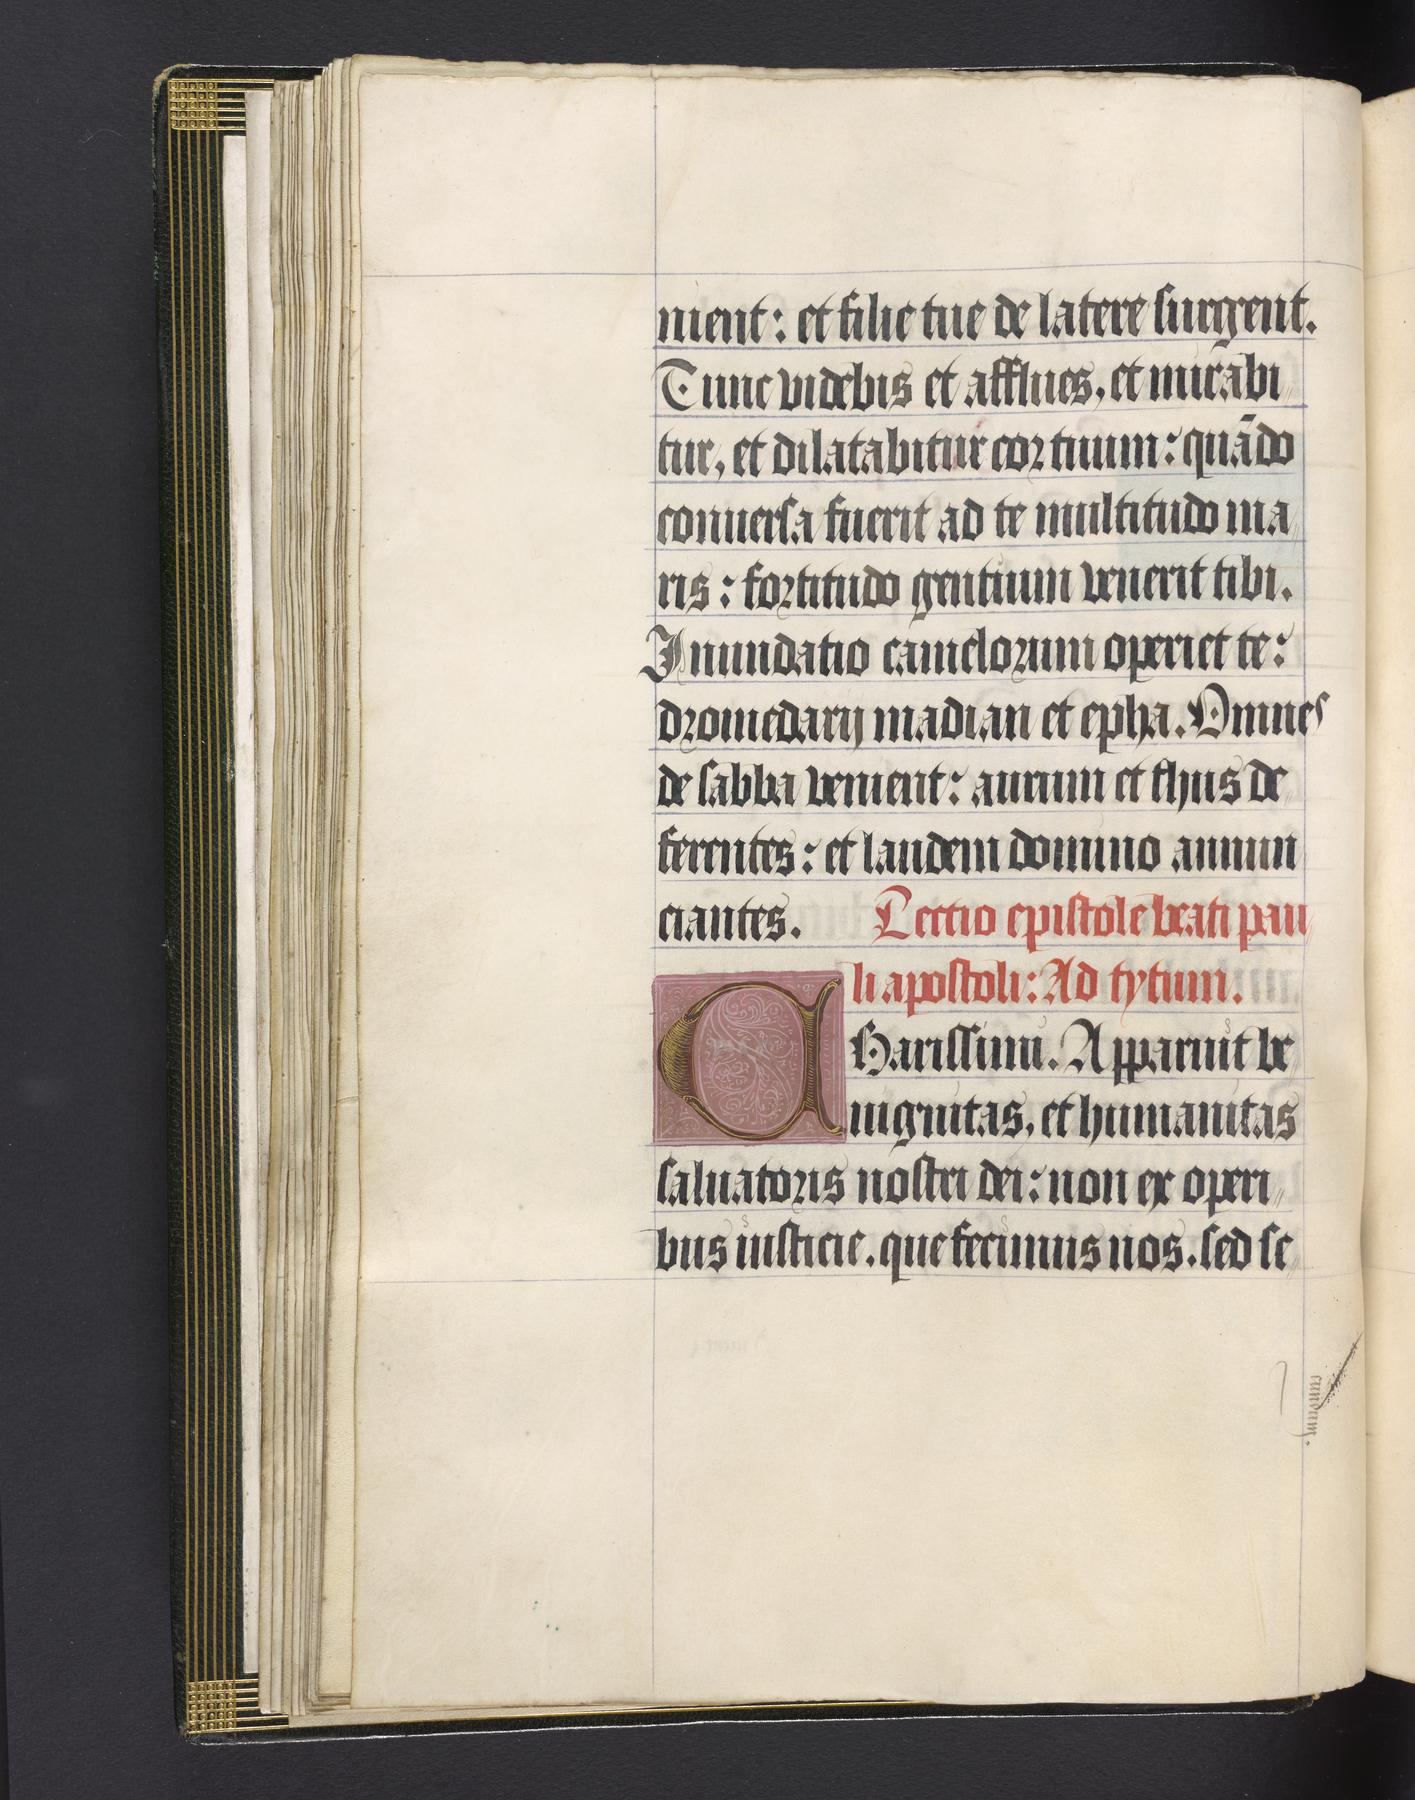 nient: et filie tue de latere surgent.
Tunc videbis et afflues, et mirabi
tur, et dilatabitur cor tuum: quādo
conuersa fuerit ad te multitudo ma
ris: fortitudo gentium venerit tibi.
Inundatio camelorum operiet te:
dromedarij madian et epha. Omnes
de sabba venient: aurum et thus de
ferentes: et laudem domino annun
ciantes. Lectio epistole beati pau
li apostoli: Ad tytum.
CHarissimi. Apparuit be
nignitas, et humanitas
saluatoris nostri dei: non ex operi
bus iusticie. que fecimus nos. sed se